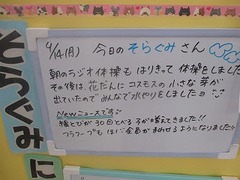 9/4(月) 今日の そらぐみ さん
朝のラジオ体操も はりきって 体操をしました
その後は、花だんに コスモスの 小さな 芽が
出ていたので みんなで 水やりをしました
Newニュースです
縄とびが 30回とべる子が 増えてきました!!
フラフープも ほぼ 全員が まわせるようになりました☆
そらぐみに